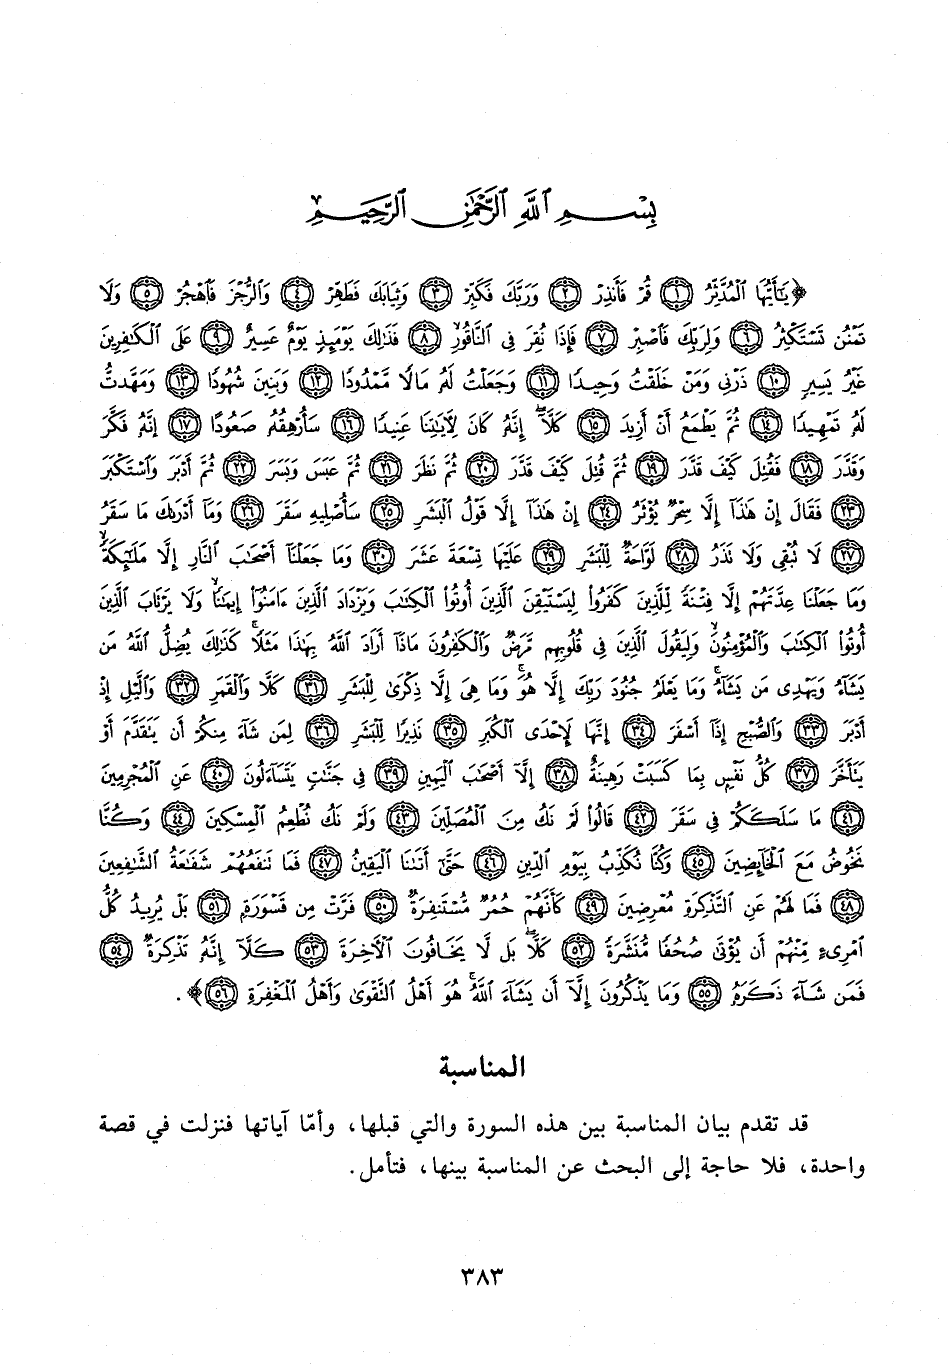 بِسْمِ ٱللَّهِ ٱلرَّحْمَٰنِ ٱلرَّحِيمِ
﴿يَٰٓأَيُّهَا ٱلْمُدَّثِّرُ ١ قُمْ فَأَنذِرْ ٢ وَرَبَّكَ فَكَبِّرْ ٣ وَثِيَابَكَ فَطَهِّرْ ٤ وَٱلرُّجْزَ فَٱهْجُرْ ٥ وَلَا
تَمْنُن تَسْتَكْثِرُ ٦ وَلِرَبِّكَ فَٱصْبِرْ ٧ فَإِذَا نُقِرَ فِى ٱلنَّاقُورِ ٨ فَذَٰلِكَ يَوْمَئِذٍ يَوْمٌ عَسِيرٌ ٩ عَلَى ٱلْكَٰفِرِينَ
غَيْرُ يَسِيرٍ ١٠ ذَرْنِى وَمَنْ خَلَقْتُ وَحِيدًا ١١ وَجَعَلْتُ لَهُۥ مَالًا مَّمْدُودًا ١٢ وَبَنِينَ شُهُودًا ١٣ وَمَهَّدتُّ
لَهُۥ تَمْهِيدًا ١٤ ثُمَّ يَطْمَعُ أَنْ أَزِيدَ ١٥ كَلَّآ ۖ إِنَّهُۥ كَانَ لِـَٔايَٰتِنَا عَنِيدًا ١٦ سَأُرْهِقُهُۥ صَعُودًا ١٧ إِنَّهُۥ فَكَّرَ
وَقَدَّرَ ١٨ فَقُتِلَ كَيْفَ قَدَّرَ ١٩ ثُمَّ قُتِلَ كَيْفَ قَدَّرَ ٢٠ ثُمَّ نَظَرَ ٢١ ثُمَّ عَبَسَ وَبَسَرَ ٢٢ ثُمَّ أَدْبَرَ وَٱسْتَكْبَرَ
٢٣ فَقَالَ إِنْ هَٰذَآ إِلَّا سِحْرٌ يُؤْثَرُ ٢٤ إِنْ هَٰذَآ إِلَّا قَوْلُ ٱلْبَشَرِ ٢٥ سَأُصْلِيهِ سَقَرَ ٢٦ وَمَآ أَدْرَىٰكَ مَا سَقَرُ
٢٧ لَا تُبْقِى وَلَا تَذَرُ ٢٨ لَوَّاحَةٌ لِّلْبَشَرِ ٢٩ عَلَيْهَا تِسْعَةَ عَشَرَ ٣٠ وَمَا جَعَلْنَآ أَصْحَٰبَ ٱلنَّارِ إِلَّا مَلَٰٓئِكَةً ۙ
وَمَا جَعَلْنَا عِدَّتَهُمْ إِلَّا فِتْنَةً لِّلَّذِينَ كَفَرُوا۟ لِيَسْتَيْقِنَ ٱلَّذِينَ أُوتُوا۟ ٱلْكِتَٰبَ وَيَزْدَادَ ٱلَّذِينَ ءَامَنُوٓا۟ إِيمَٰنًا ۙ وَلَا يَرْتَابَ ٱلَّذِينَ
أُوتُوا۟ ٱلْكِتَٰبَ وَٱلْمُؤْمِنُونَ ۙ وَلِيَقُولَ ٱلَّذِينَ فِى قُلُوبِهِم مَّرَضٌ وَٱلْكَٰفِرُونَ مَاذَآ أَرَادَ ٱللَّهُ بِهَٰذَا مَثَلًا ۚ كَذَٰلِكَ يُضِلُّ ٱللَّهُ مَن
يَشَآءُ وَيَهْدِى مَن يَشَآءُ ۚ وَمَا يَعْلَمُ جُنُودَ رَبِّكَ إِلَّا هُوَ ۚ وَمَا هِىَ إِلَّا ذِكْرَىٰ لِلْبَشَرِ ٣١ كَلَّا وَٱلْقَمَرِ ٣٢ وَٱلَّيْلِ إِذْ
أَدْبَرَ ٣٣ وَٱلصُّبْحِ إِذَآ أَسْفَرَ ٣٤ إِنَّهَا لَإِحْدَى ٱلْكُبَرِ ٣٥ نَذِيرًا لِّلْبَشَرِ ٣٦ لِمَن شَآءَ مِنكُمْ أَن يَتَقَدَّمَ أَوْ
يَتَأَخَّرَ ٣٧ كُلُّ نَفْسٍۭ بِمَا كَسَبَتْ رَهِينَةٌ ٣٨ إِلَّآ أَصْحَٰبَ ٱلْيَمِينِ ٣٩ فِى جَنَّٰتٍ يَتَسَآءَلُونَ ٤٠ عَنِ ٱلْمُجْرِمِينَ
٤١ مَا سَلَكَكُمْ فِى سَقَرَ ٤٢ قَالُوا۟ لَمْ نَكُ مِنَ ٱلْمُصَلِّينَ ٤٣ وَلَمْ نَكُ نُطْعِمُ ٱلْمِسْكِينَ ٤٤ وَكُنَّا
نَخُوضُ مَعَ ٱلْخَآئِضِينَ ٤٥ وَكُنَّا نُكَذِّبُ بِيَوْمِ ٱلدِّينِ ٤٦ حَتَّىٰٓ أَتَىٰنَا ٱلْيَقِينُ ٤٧ فَمَا نَنفَعُهُمْ شَفَٰعَةُ ٱلشَّٰفِعِينَ
٤٨ فَمَا لَهُمْ عَنِ ٱلتَّذْكِرَةِ مُعْرِضِينَ ٤٩ كَأَنَّهُمْ حُمُرٌ مُّسْتَنفِرَةٌ ٥٠ فَرَّتْ مِن قَسْوَرَةٍۭ ٥١ بَلْ يُرِيدُ كُلُّ
ٱمْرِئٍ مِّنْهُمْ أَن يُؤْتَىٰ صُحُفًا مُّنَشَّرَةً ٥٢ كَلَّا ۖ بَل لَّا يَخَافُونَ ٱلْءَاخِرَةَ ٥٣ كَلَّآ إِنَّهُۥ تَذْكِرَةٌ ٥٤
فَمَن شَآءَ ذَكَرَهُۥ ٥٥ وَمَا يَذْكُرُونَ إِلَّآ أَن يَشَآءَ ٱللَّهُ ۚ هُوَ أَهْلُ ٱلتَّقْوَىٰ وَأَهْلُ ٱلْمَغْفِرَةِ ٥٦﴾.
المناسبة
قد تقدم بيان المناسبة بين هذه السورة والتي قبلها، وأمّا آياتها فنزلت في قصة
واحدة، فلا حاجة إلى البحث عن المناسبة بينها، فتأمل.
٣٨٣